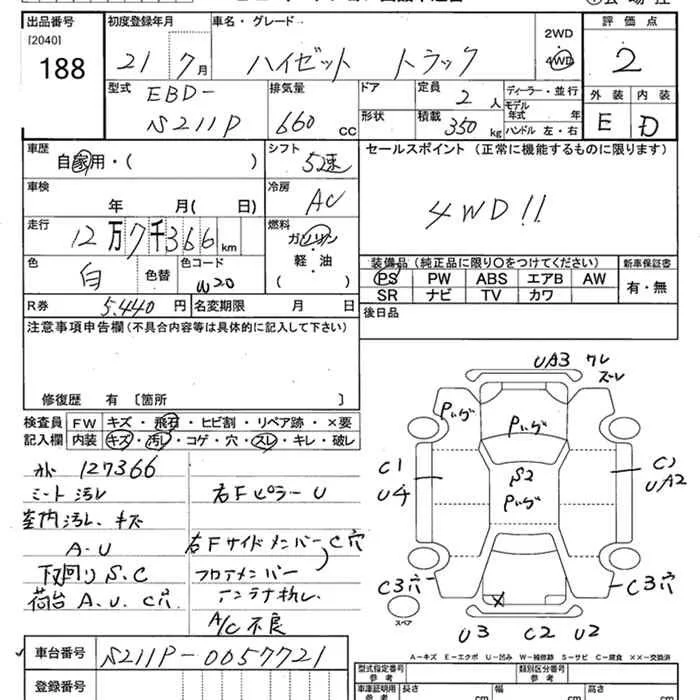 出品番号 初度登録年月 車名・グレード 評価点
[2040]
188
21 7月 ハイゼット トラック 2WD 4WD 2
型式 排気量 ドア 定員 2人 ディーラー・並行 外装 内装
EBD-
S211P 660 cc 形状 積載 350 kg モデル年式 年 ハンドル 左・右 E D
車歴 シフト セールスポイント(正常に機能するものに限ります)
自家用・( ) 5速
車検 年 月( 日) 冷房 AC 4WD!!
走行 12万7千366 km 燃料 ガソリン
軽・油
( )
色 白 色替 色コード W20
装備品(純正品に限り○をつけてください) 新車保証書
PS PW ABS エアB AW 有・無
SR ナビ TV カワ
R券 5,440円 名変期限 月 日 後日品
注意事項申告欄(不具合内容等は具体的に記入して下さい)
修復歴 有〔箇所
検査員記入欄 FW キズ・飛石・ヒビ割・リペア跡・×要
内装 キズ・汚レ・コゲ・穴・スレ・キレ・破レ
127366
シート汚レ 右FピラーU
室内汚レ、キズ
A・U 右FサイドメンバーC穴
下回りS.C フロアメンバー
荷台 A.U.C穴 アンテナ折レ.
A/C不良
UA3 ワレ
ズレ
S2
C1
U4
UA2
C3穴
C3穴
スペア
U3 C2 U2
A-キズ E-エクボ U-凹み W-補修跡 S-サビ C-腐食 ××-交換済
車台番号 S211P-0057721
登録番号
型式指定番号 参考 類別区分番号 参考
車庫証明用 参考 長さ cm 幅 cm 高さ cm